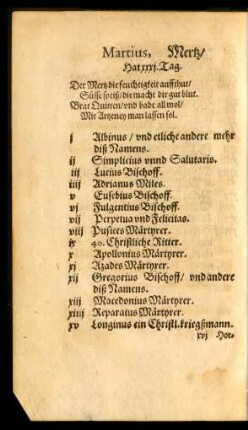 Martius, Mertz/
Hat xxxj. Tag.
Der Mertz die feuchtigkeit auffthut/
Süsse speiß/ die macht dir gut blut.
Brat Quitten/ vnd bade all mol/
Mit Artzeney man lassen sol.
j Albinus / vnd etliche andere mehr
diß Namens.
ij Simplicius vnnd Salutaris.
iij Lucius Bischoff.
iiij Adrianus Miles.
v Eusebius Bischoff.
vj Fulgentius Bischoff.
vij Perpetua vnd Felicitas.
viij Pusices Märtyrer.
ix 40. Christliche Ritter.
x Apollonius Märtyrer.
xj Azades Märtyrer.
xij Gregorius Bischoff/ vnd andere
diß Namens.
xiij Macedonius Märtyrer.
xiiij Reparatus Märtyrer.
xv Longinus ein Christl. kriegßmann.
xvj Her-